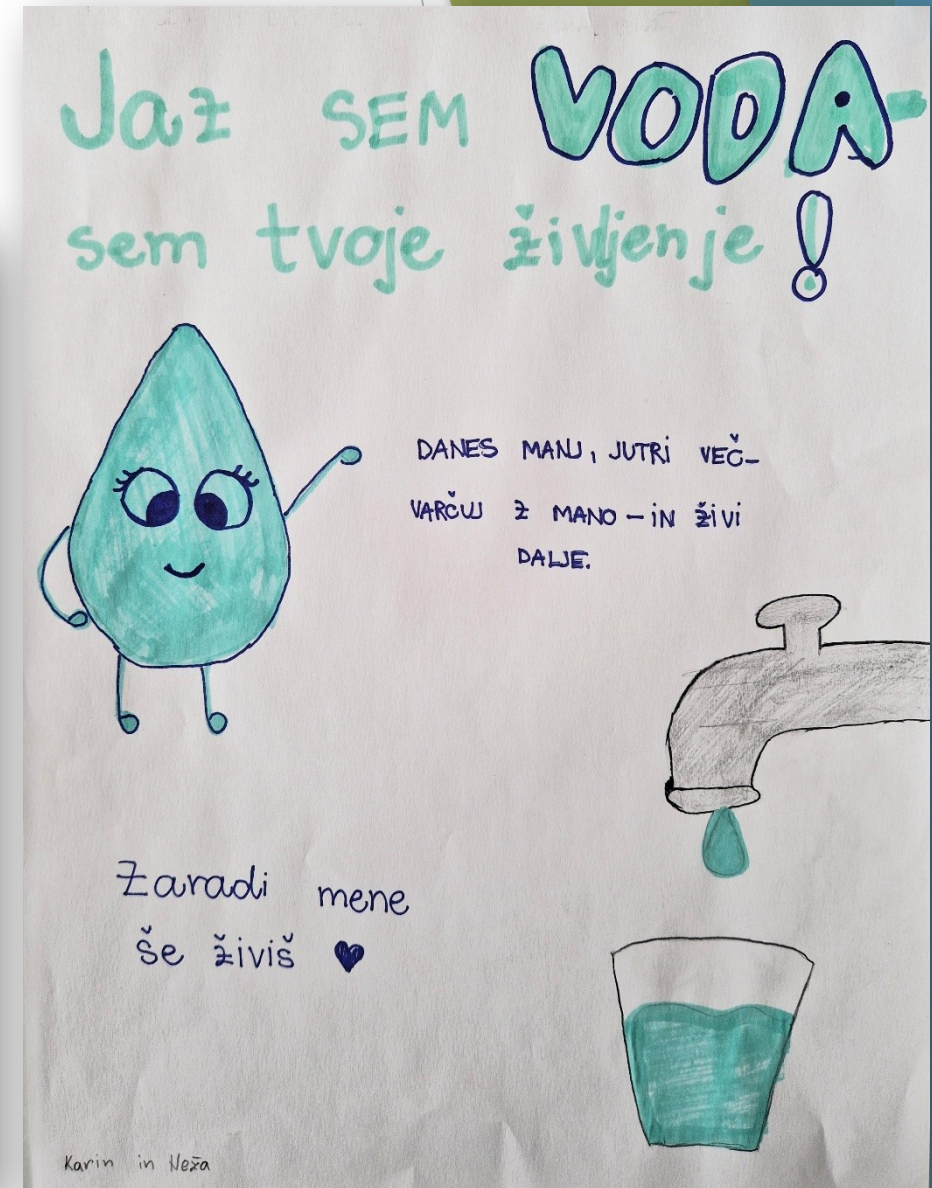 Jaz SEM VODA-
sem tvoje življenje!
DANES MANJ, JUTRI VEČ-
VARČUJ Z MANO - IN ŽIVI
DALJE.
Zaradi mene
še živiš ♥
Karin in Neža